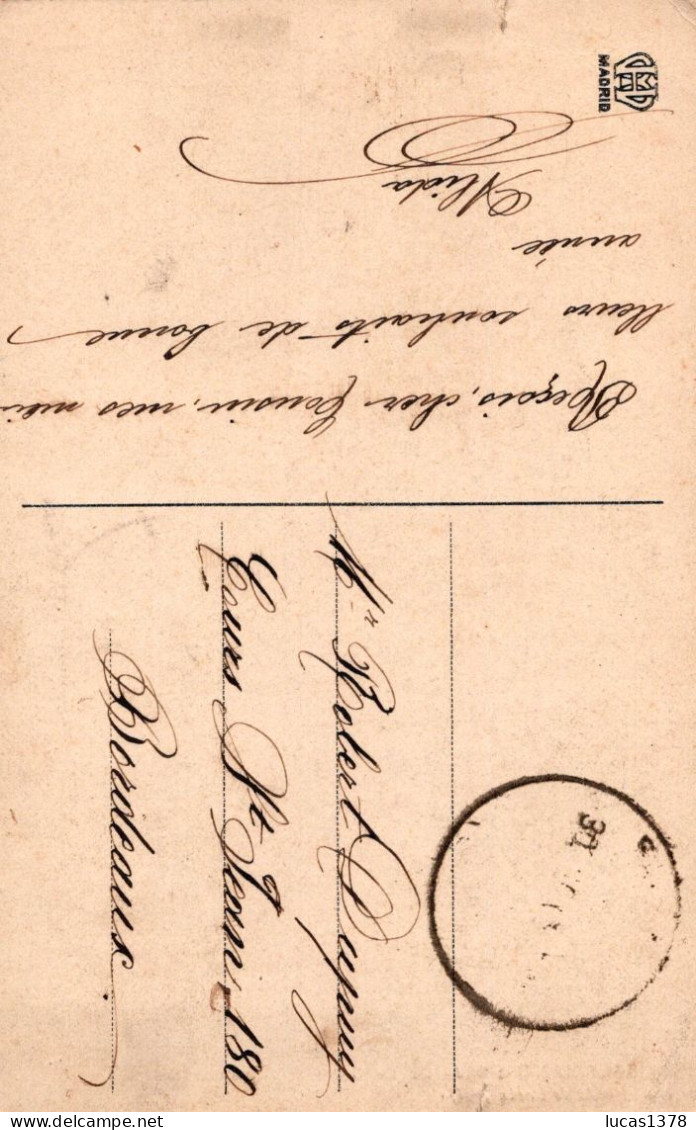 MADRID
Reçois, cher Cousin, mes meil-
leurs souhaits de bonne
année
Alida
Mr Robert Dupuy
Cours St Jean, 180
Bordeaux.
30
lucas1378